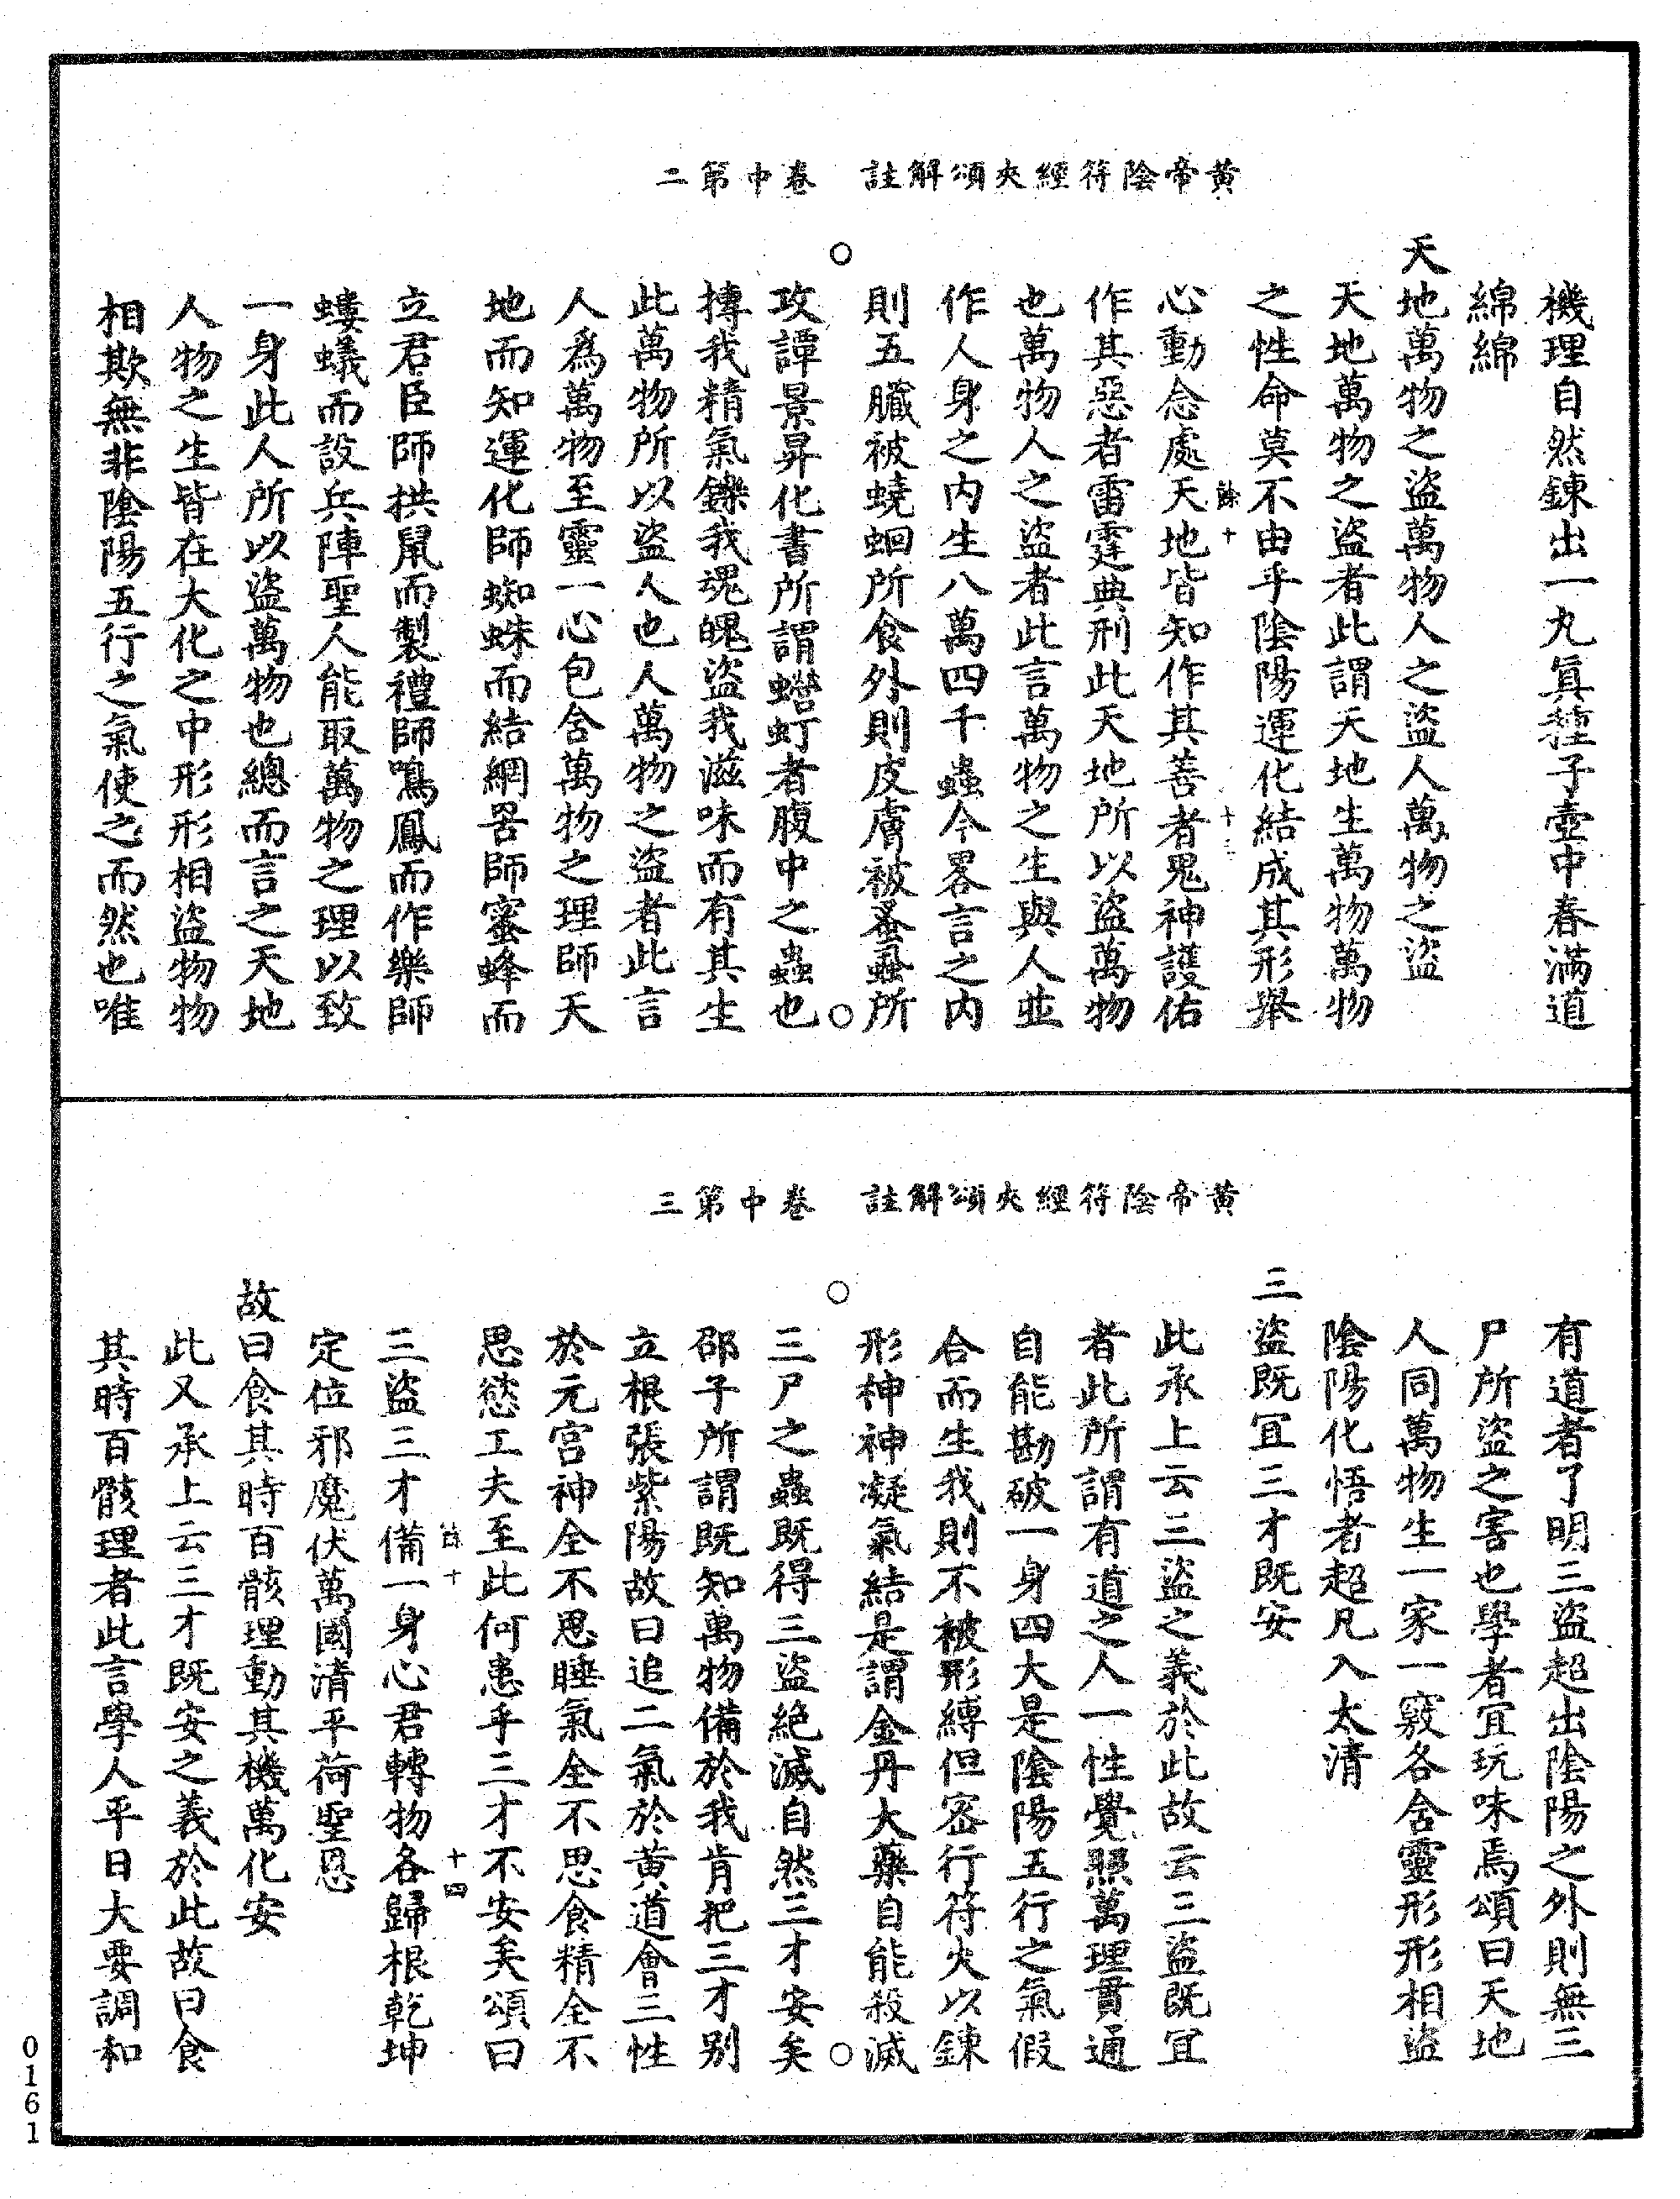 黃帝陰符經夾頌解註 卷中第二
機理自然鍊出一丸眞種子壺中春滿道
綿綿
天地萬物之盜萬物人之盜人萬物之盜
天地萬物之盜者此謂天地生萬物萬物
之性命莫不由乎陰陽運化結成其形舉
餘十 十三
心動念處天地皆知作其善者鬼神護佑
作其惡者雷霆典刑此天地所以盜萬物
也萬物人之盜者此言萬物之生與人並
作人身之内生八萬四千蟲今畧言之内
則五臟被蟯蛔所食外則皮膚被蚤蝨所
攻譚景昇化書所謂蠐虰者腹中之蟲也
搏我精氣鑠我魂魄盜我滋味而有其生
此萬物所以盜人也人萬物之盜者此言
人爲萬物至靈一心包含萬物之理師天
地而知運化師蜘蛛而結網罟師蜜蜂而
立君臣師拱鼠而製禮師鳴鳳而作樂師
螻蟻而設兵陣聖人能取萬物之理以致
一身此人所以盜萬物也總而言之天地
人物之生皆在大化之中形形相盜物物
相欺無非陰陽五行之氣使之而然也唯
黃帝陰符經夾頌解註 卷中第三
有道者了明三盜超出陰陽之外則無三
尸所盜之害也學者宜玩味焉頌曰天地
人同萬物生一家一竅各含靈形形相盜
陰陽化悟者超凡入太清
三盜既宜三才既安
此承上云三盜之義於此故云三盜既宜
者此所謂有道之人一性覺照萬理貫通
自能勘破一身四大是陰陽五行之氣假
合而生我則不被形縛但密行符火以鍊
形神神凝氣結是謂金丹大藥自能殺滅
三尸之蟲既得三盜絶滅自然三才安矣
邵子所謂既知萬物備於我肯把三才别
立根張紫陽故曰追二氣於黃道會三性
於元宮神全不思睡氣全不思食精全不
思慾工夫至此何患乎三才不安矣頌曰
餘十 十四
三盜三才備一身心君轉物各歸根乾坤
定位邪魔伏萬國清平荷聖恩
故曰食其時百骸理動其機萬化安
此又承上云三才既安之義於此故曰食
其時百骸理者此言學人平日大要調和
0161